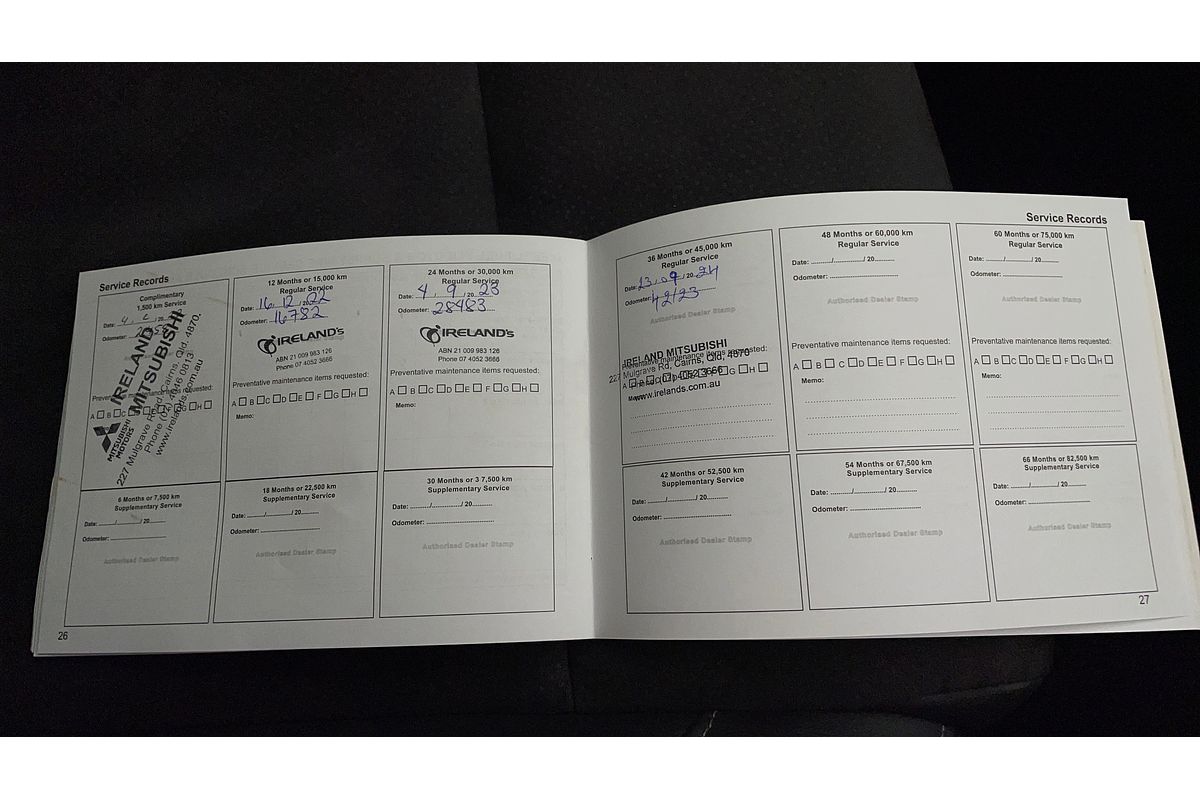 Service Records
Complimentary
1,500 km Service
Date: 4 / 2 / 20
Odometer:
IRELAND
MITSUBISHI
MITSUBISHI
MOTORS
227 Mulgrave Road, Cairns, Qld, 4870.
Phone (07) 4046 0813
www.irelands.com.au
Preventative maintenance items requested:
A B C D E F G H
12 Months or 15,000 km
Regular Service
Date: 16 / 12 / 2022
Odometer: 16782
IRELAND's
ABN 21 009 983 126
Phone 07 4052 3666
Preventative maintenance items requested:
A B C D E F G H
Memo:
24 Months or 30,000 km
Regular Service
Date: 4 / 9 / 20 23
Odometer: 28483
IRELAND's
ABN 21 009 983 126
Phone 07 4052 3666
Preventative maintenance items requested:
A B C D E F G H
Memo:
6 Months or 7,500 km
Supplementary Service
Date: ......../......../ 20.........
Odometer: ................................
Authorised Dealer Stamp
18 Months or 22,500 km
Supplementary Service
Date: ......../......../ 20.........
Odometer: ................................
Authorised Dealer Stamp
30 Months or 3 7,500 km
Supplementary Service
Date: ......../......../ 20.........
Odometer: ................................
Authorised Dealer Stamp
26
Service Records
36 Months or 45,000 km
Regular Service
Date: 13 / 09 / 20 24
Odometer: 42123
Authorised Dealer Stamp
IRELAND MITSUBISHI
Preventative maintenance items requested:
227 Mulgrave Rd, Cairns, Qld, 4870
A B C D E F G H
Phone (07) 4052 3666
Memo:
www.irelands.com.au
48 Months or 60,000 km
Regular Service
Date: ......../......../ 20.........
Odometer: ................................
Authorised Dealer Stamp
Preventative maintenance items requested:
A B C D E F G H
Memo:
60 Months or 75,000 km
Regular Service
Date: ......../......../ 20.........
Odometer: ................................
Authorised Dealer Stamp
Preventative maintenance items requested:
A B C D E F G H
Memo:
42 Months or 52,500 km
Supplementary Service
Date: ......../......../ 20.........
Odometer: ................................
Authorised Dealer Stamp
54 Months or 67,500 km
Supplementary Service
Date: ......../......../ 20.........
Odometer: ................................
Authorised Dealer Stamp
66 Months or 82,500 km
Supplementary Service
Date: ......../......../ 20.........
Odometer: ................................
Authorised Dealer Stamp
27